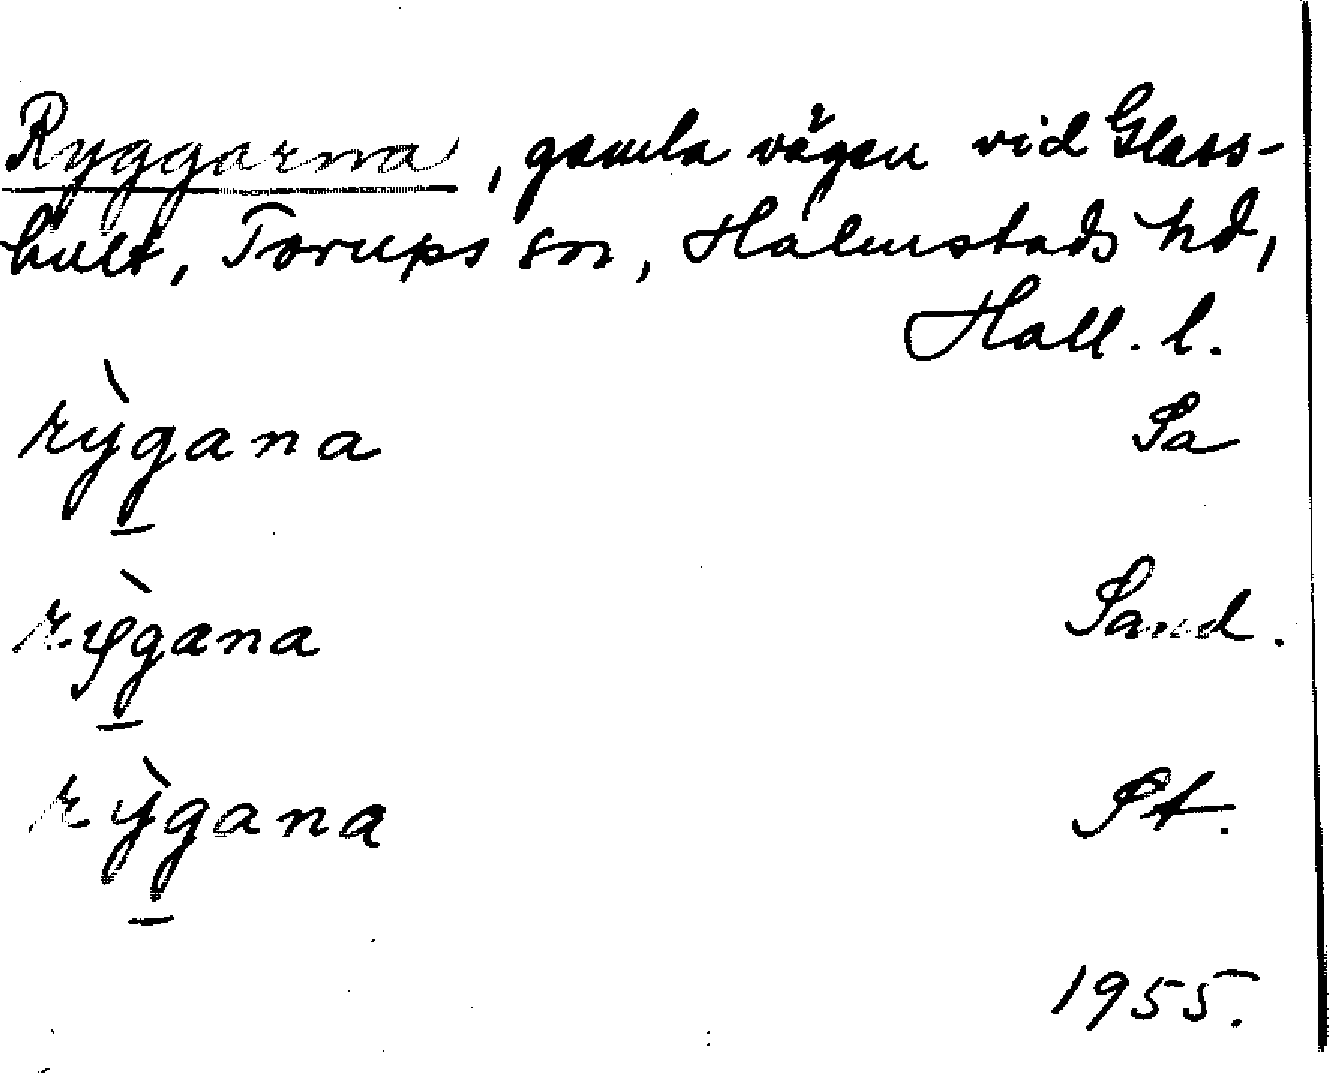 Ryggarna, gamla vägen vid Glass-
hult, Torups sn, Halmstads hd,
Hall. l.
rỳg̲ana Sa
rỳg̲ana Sand.
rỳg̲ana St.
1955.